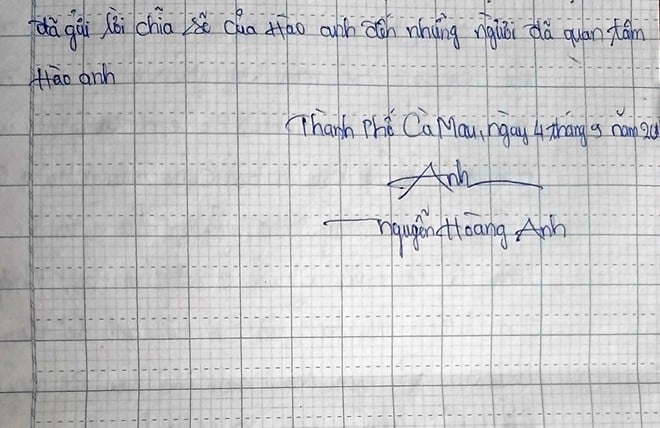 đã gửi lời chia sẽ của Hào anh đến những người đã quan tâm
Hào anh
Thành Phố Cà Mau, ngày 4 tháng 9 năm 20
Anh
nguyễn Hoàng Anh